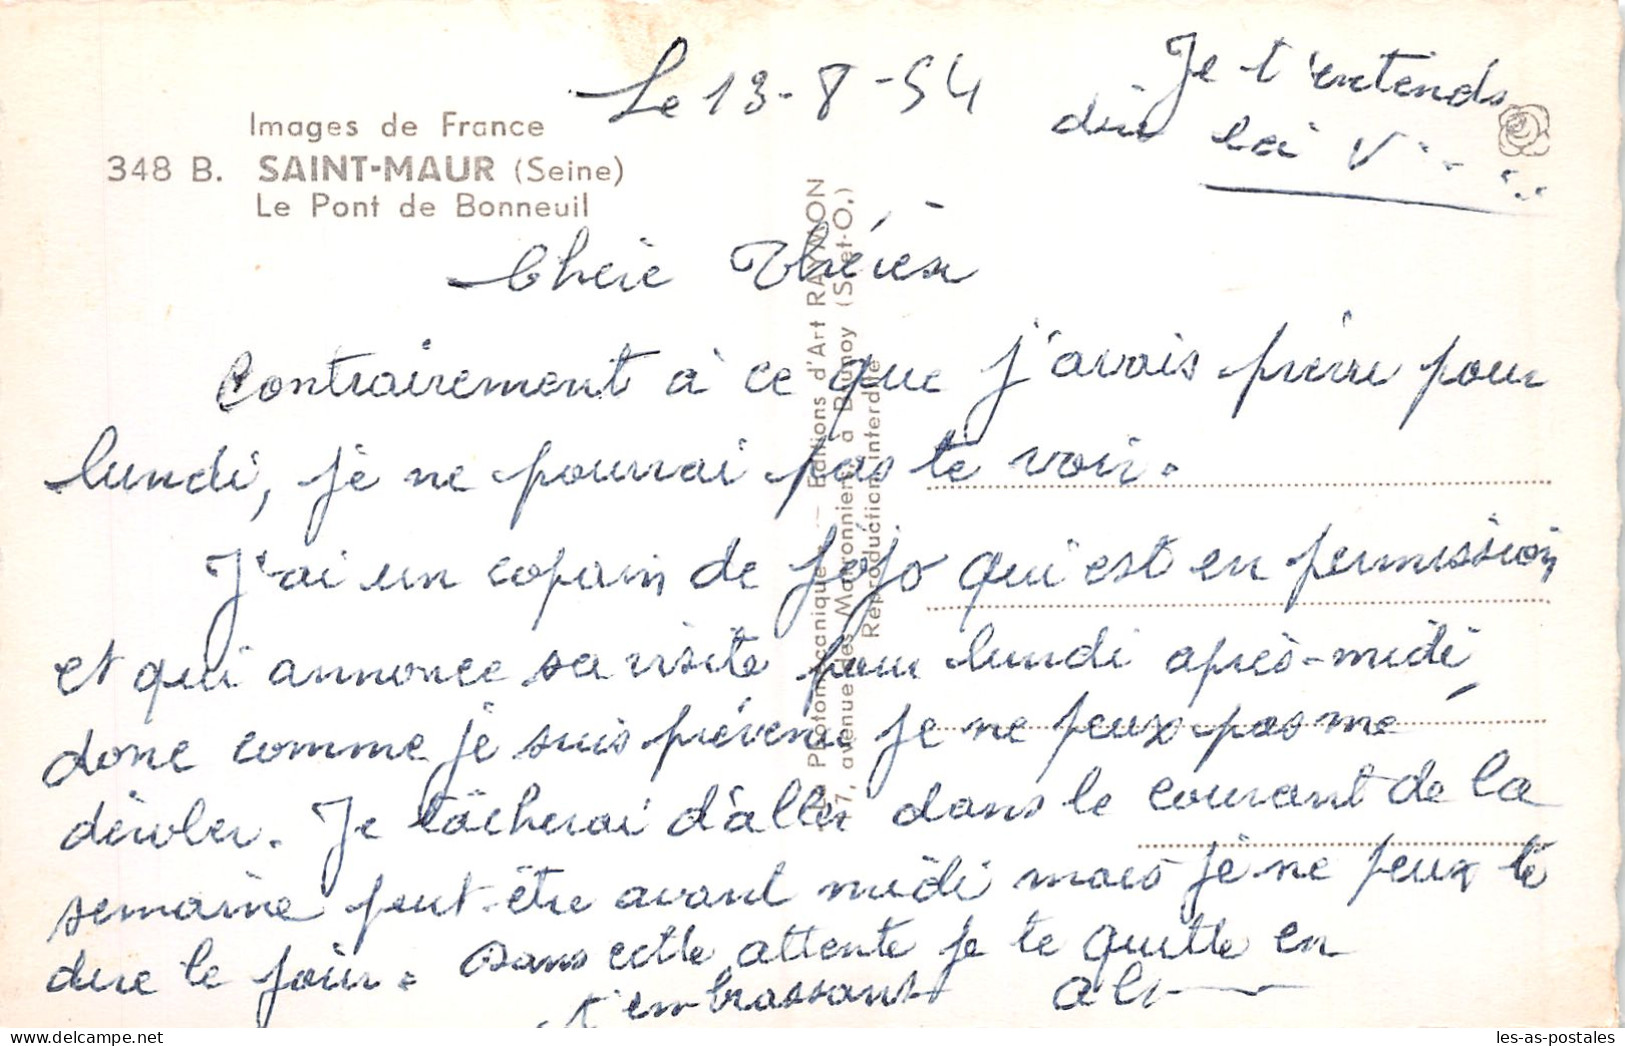 Le 13-8-54
Je t'entends
dire la V
Images de France
348 B. SAINT-MAUR (Seine)
Le Pont de Bonneuil
Chère Thérèse
Contrairement à ce que j'avais prévu pour
lundi, je ne pourrai pas te voir.
J'ai un copain de Jojo qui est en permission
et qui annonce sa visite pour lundi après-midi,
donc comme je suis prévenu je ne peux pas me
dérober. Je tâcherai d'aller dans le courant de la
semaine peut-être avant midi mais je ne peux te
dire le jour. Dans cette attente je te quitte en
t'embrassant
Photomécanique — Éditions d'Art RAYMON
7, avenue des Marronniers, à Brunoy (S.-et-O.)
Reproduction interdite
les-as-postales